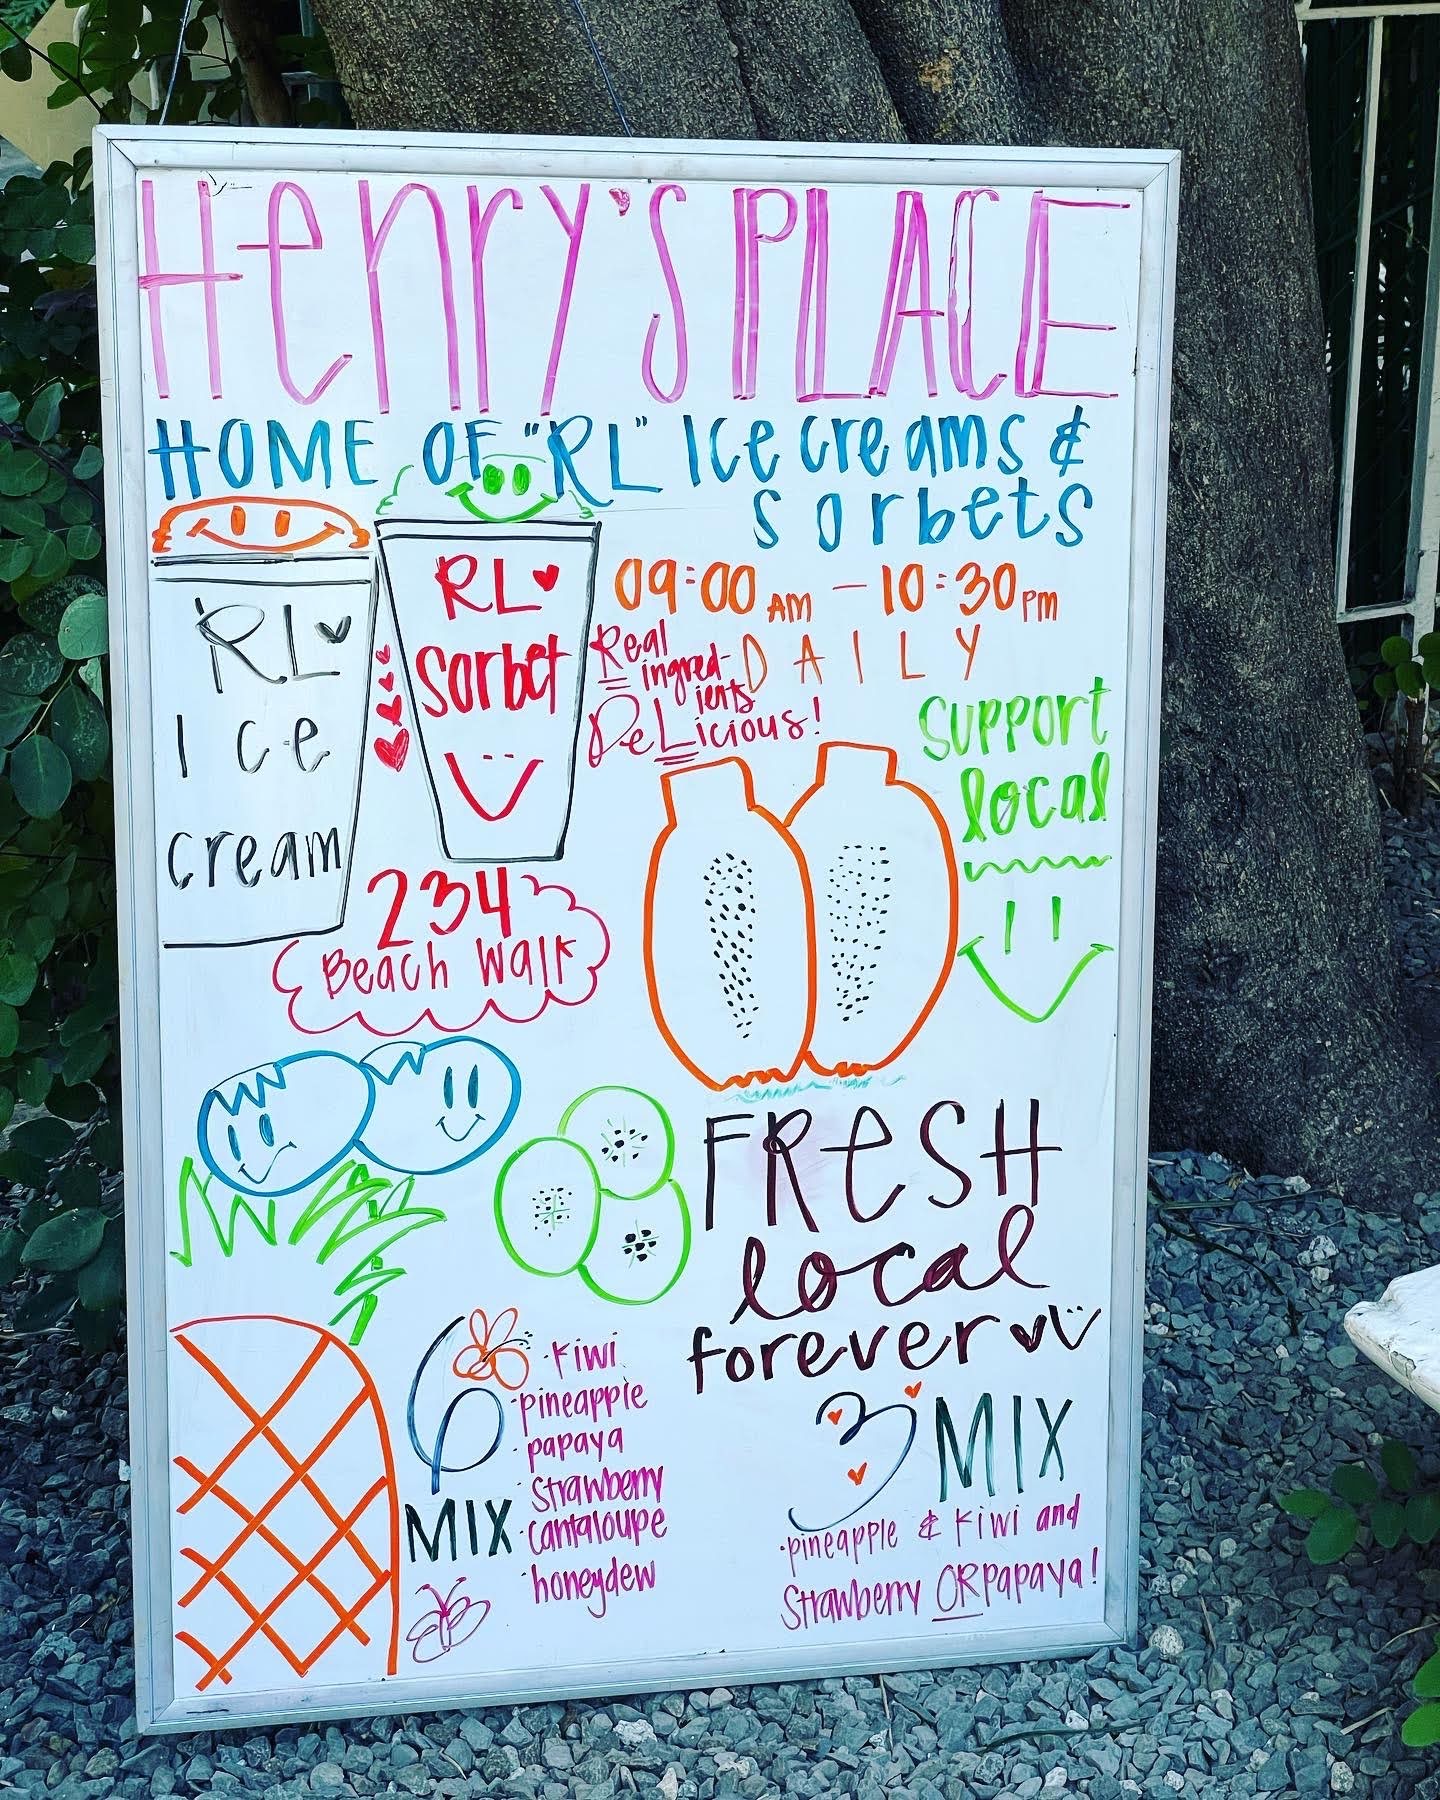 Henry's PLACE
HOME OF "RL" Ice creams &
sorbets
RL
Ice
cream
RL
Sorbet
09:00 AM – 10:30 PM
DAILY
Real
ingred-
ients
DeLicious!
Support
local
234
Beach Walk
FResH
local
forever
6
MIX
·kiwi
·pineapple
·papaya
·Strawberry
·Cantaloupe
·honeydew
3 MIX
·pineapple & kiwi and
Strawberry OR papaya!